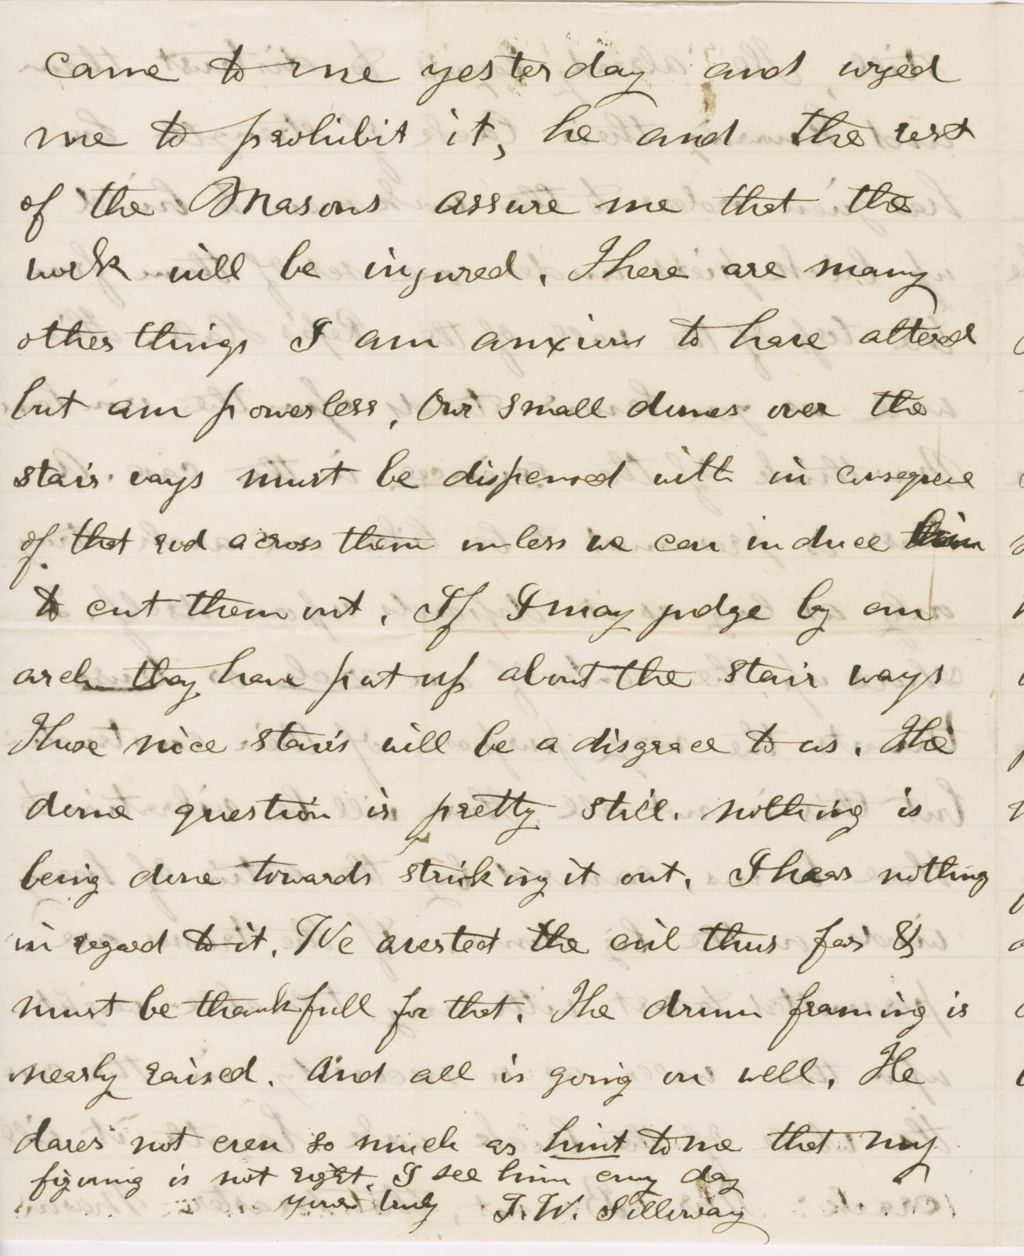 came to me yesterday and urged
me to prohibit it, he and the rest
of the Masons assure me that the
work will be injured. There are many
other things I am anxious to have altered
but am powerless. Our small domes over the
stair ways must be dispensed with in consequence
of that rod across them unless we can induce
to cut them out. If I may judge by an
arch they have put up about the stair ways
Those nice stairs will be a disgrace to us. The
dome question is pretty still. nothing is
being done towards striking it out. I hear nothing
in regard to it. We arested the evil thus far &
must be thankfull for that. The drum framing is
nearly raised. And all is going on well. He
dares not even so much as hint to me that my
figuring is not right. I see him every day
yours truly T. W. Silloway